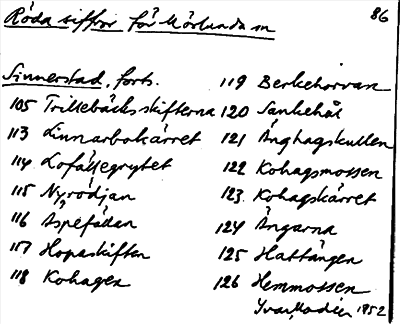 Röda siffror för Mörlunda sn
86
Sinnerstad, forts.
105 Trillebäcksskifterna
113 Linnarbokärret
114 Lofällegrytet
115 Nyrödjan
116 Aspefädan
117 Hopaskiften
118 Kohagen
119 Berkehorvan
120 Sankehål
121 Änghagskullen
122 Kohagsmossen
123 Kohagskärret
124 Ängarna
125 Hattängen
126 Hemmossen
Yvar 1952